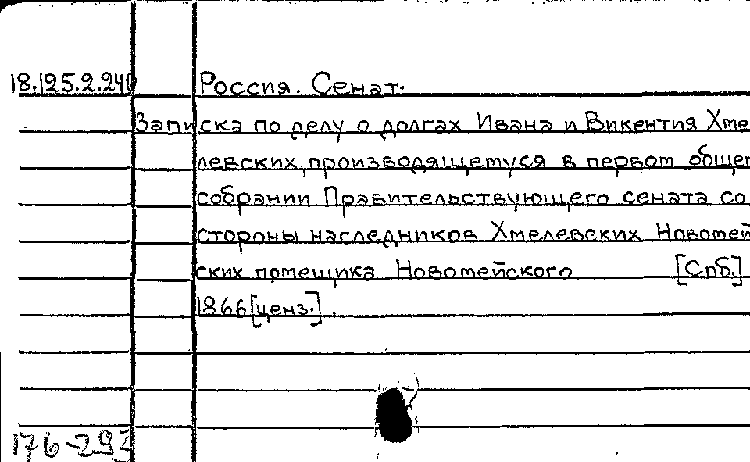 18.125.2.240 Россия. Сенат.
Записка по делу о долгах Ивана и Викентия Хме
левских, производящемуся в первом общем
собрании Правительствующего сената со
стороны наследников Хмелевских Новомей
ских помещика Новомейского [Спб.]
1866[ценз.].
176-293